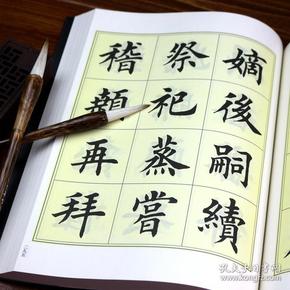 嫡後嗣續
祭祀蒸嘗
稽顙再拜
孔夫子旧书网